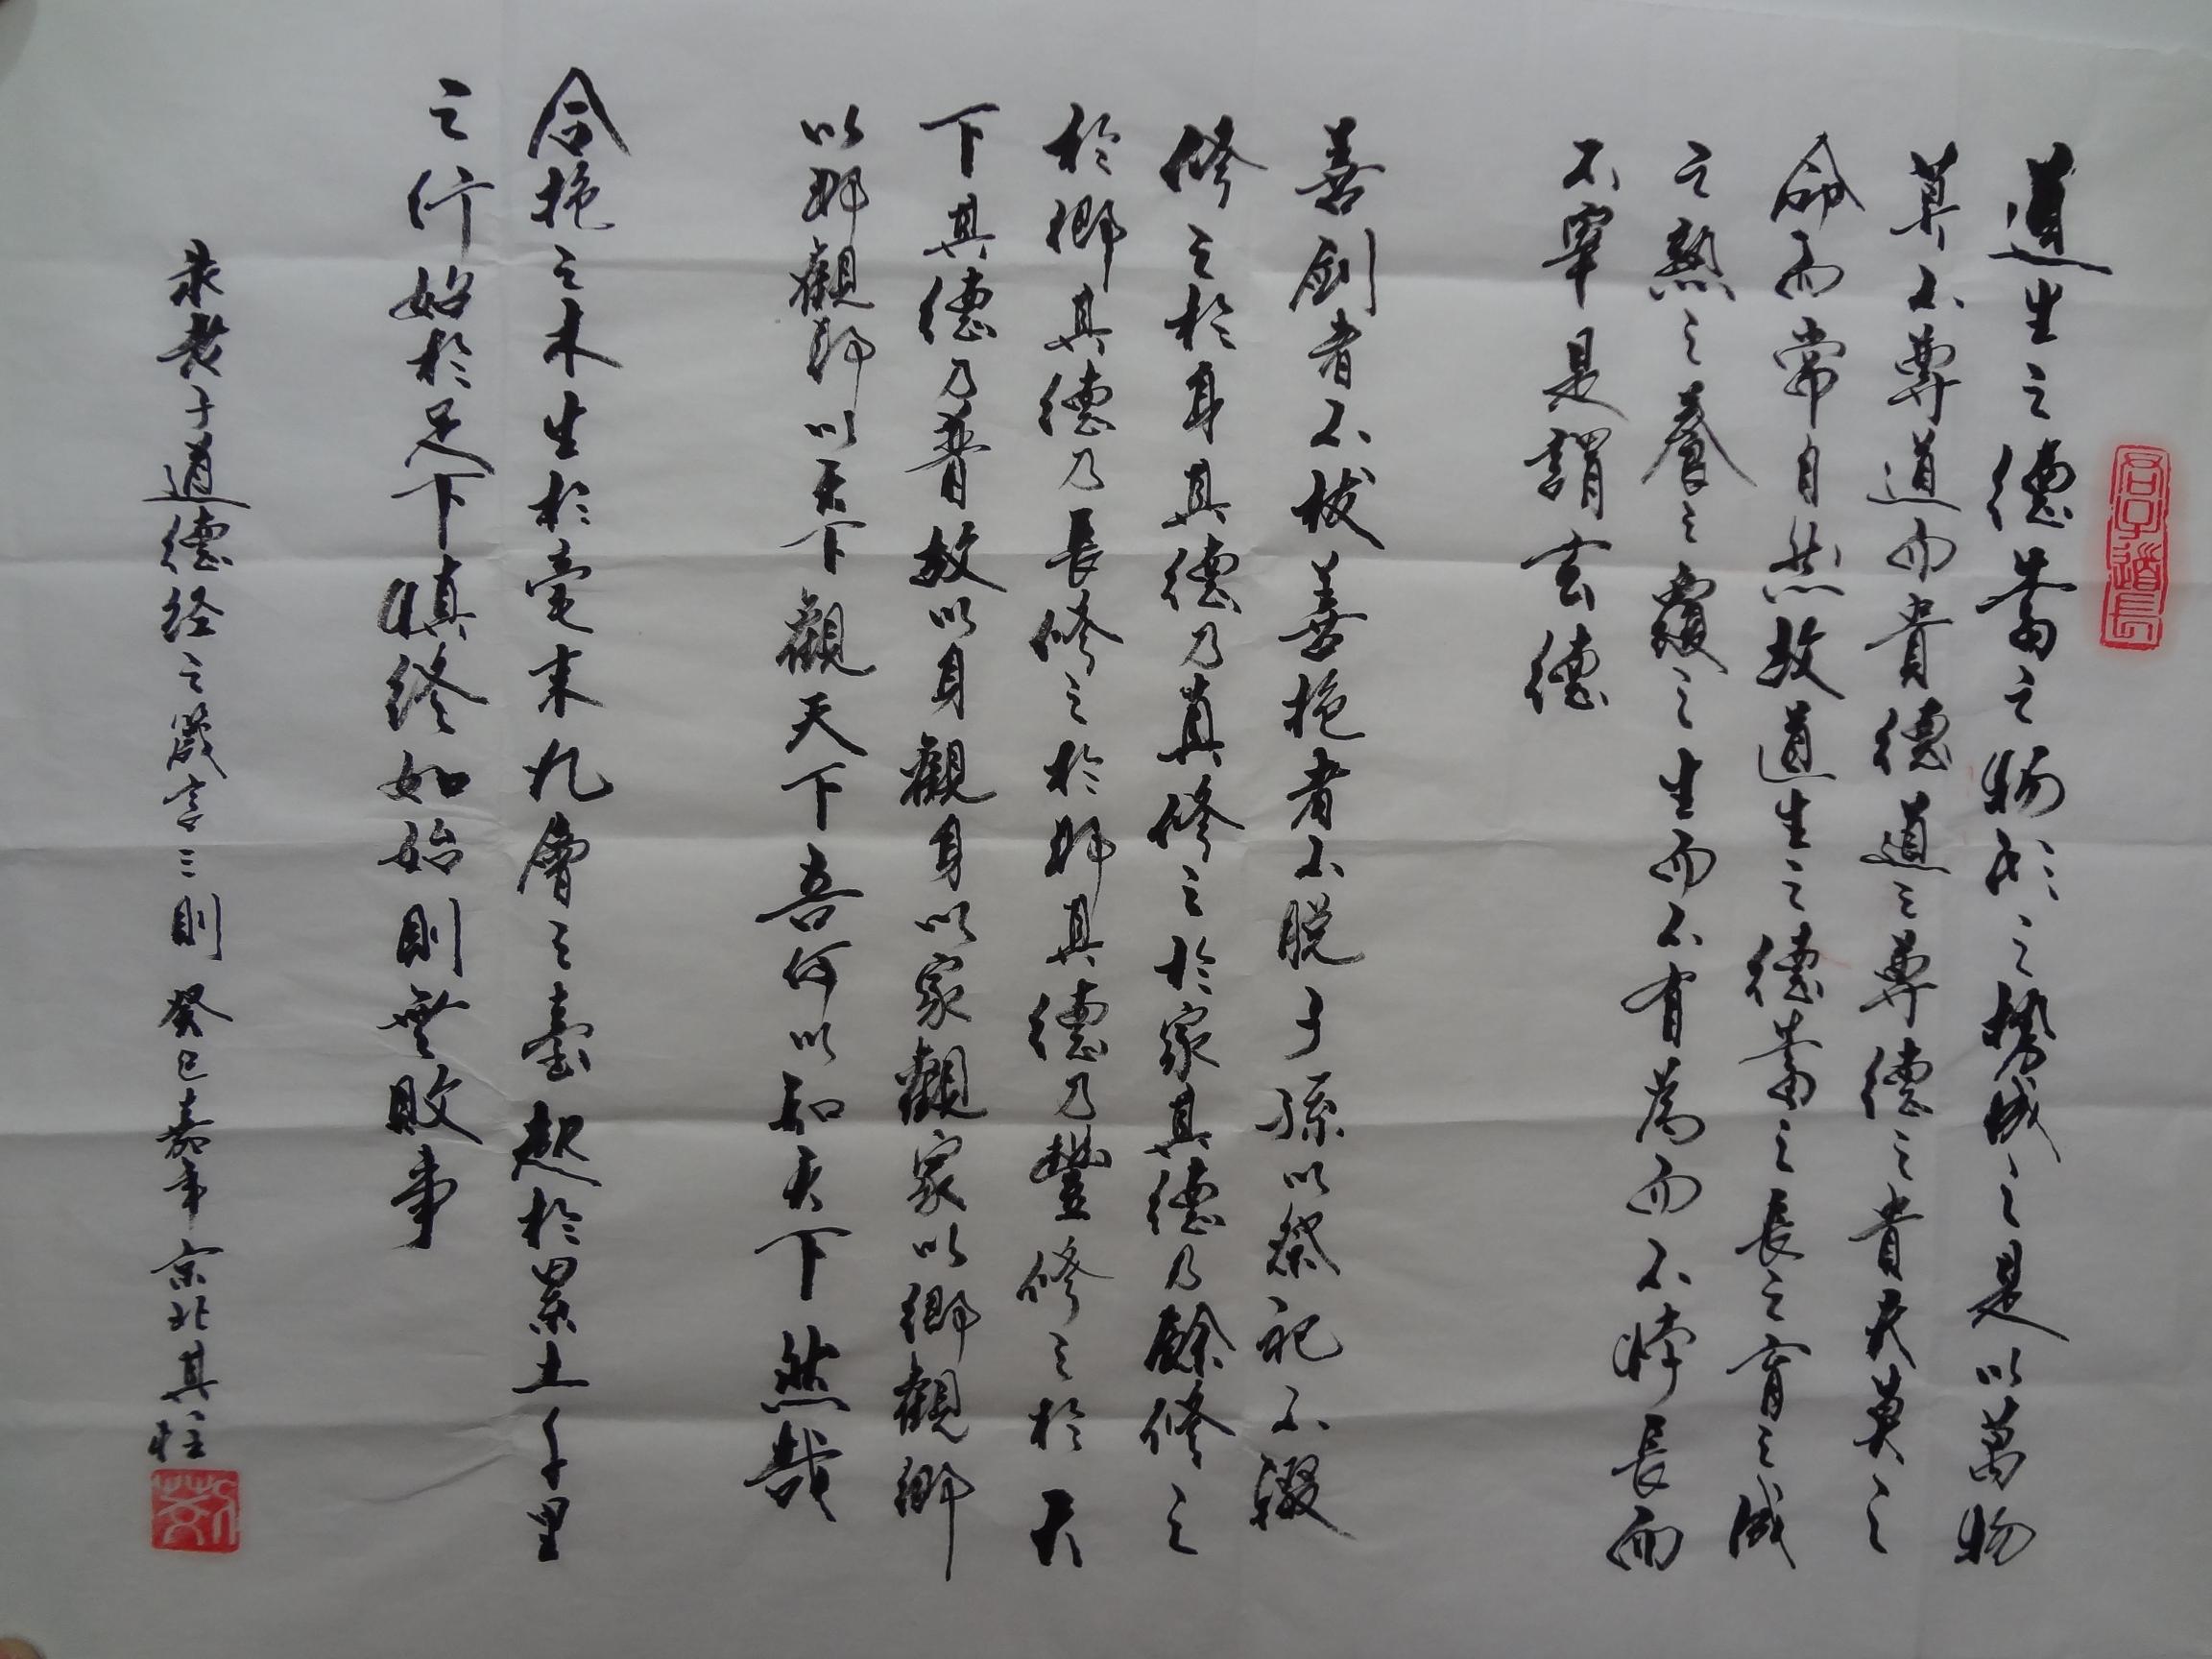 道生之德畜之物形之勢成之是以萬物
莫不尊道而貴德道之尊德之貴夫莫之
命而常自然故道生之德畜之長之育之成
之熟之養之覆之生而不有為而不恃長而
不宰是謂玄德
善劍者不拔善抱者不脱子孫以祭祀不輟
修之於身其德乃真修之於家其德乃餘修之
於鄉其德乃長修之於邦其德乃豐修之於天
下其德乃普故以身觀身以家觀家以鄉觀鄉
以邦觀邦以天下觀天下吾何以知天下然哉
合抱之木生於毫末九層之臺起於累土千里
之行始於足下慎終如始則無敗事
录老子道德经之箴言三則 癸巳嘉年京北其柱